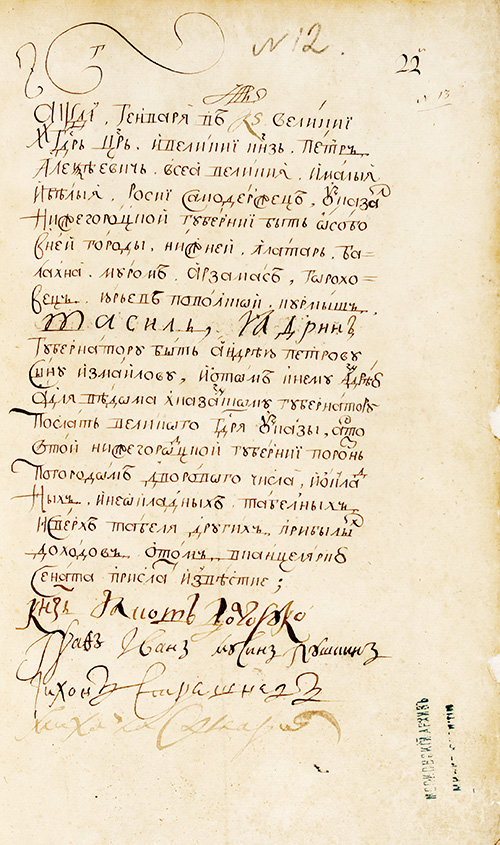 № 12.
22
№ 13
҂аѱді, Генваря въ КЅ великиї
Гдрь Црь, и великиї кнзь Петръ
Алеѯѣевичь всеа великия, и малыя
и бѣлыя Росиї самодержецъ, указа
Нижегороцкой губерниї быть особо
в ней городы, Нижней, Алатарь, Ба-
лахна. Муромъ. Арзамасъ, Горохо-
вецъ. Юрьевъ Поволской, Курмышъ.
Василь, Ядринъ
губернатору быть Андрѣю Петрову
сыну Измаилову, и о томъ к нему
а для вѣдома х казанскому губернатору
послать великого гдря указы, а что
в той Нижегородцкой губерниї порознь
по городамъ дворового числа, и оклад
ныхъ, и неокладныхъ табелныхъ
и сверхъ табеля другихъ прибылых
доходовъ о томъ в канцелярию
Сената присла извѣстие;
кнзь Яковъ Долгоруко
Графъ Иванъ Мусинъ Пушкинъ
Тихонъ Стрешневъ
Михаила Самарин
МОСКОВСКІЙ АРХИВЪ